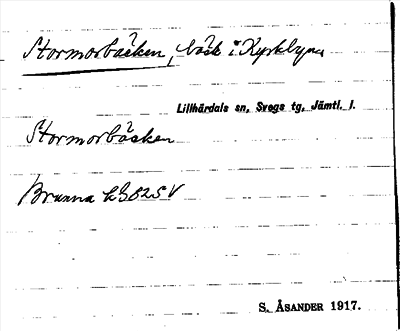 Stormorbäcken, bäck i Kyrkbyn
Lillhärdals sn, Svegs tg, Jämtl. l.
Stormorbäcken
Brunna
S. ÅSANDER 1917.